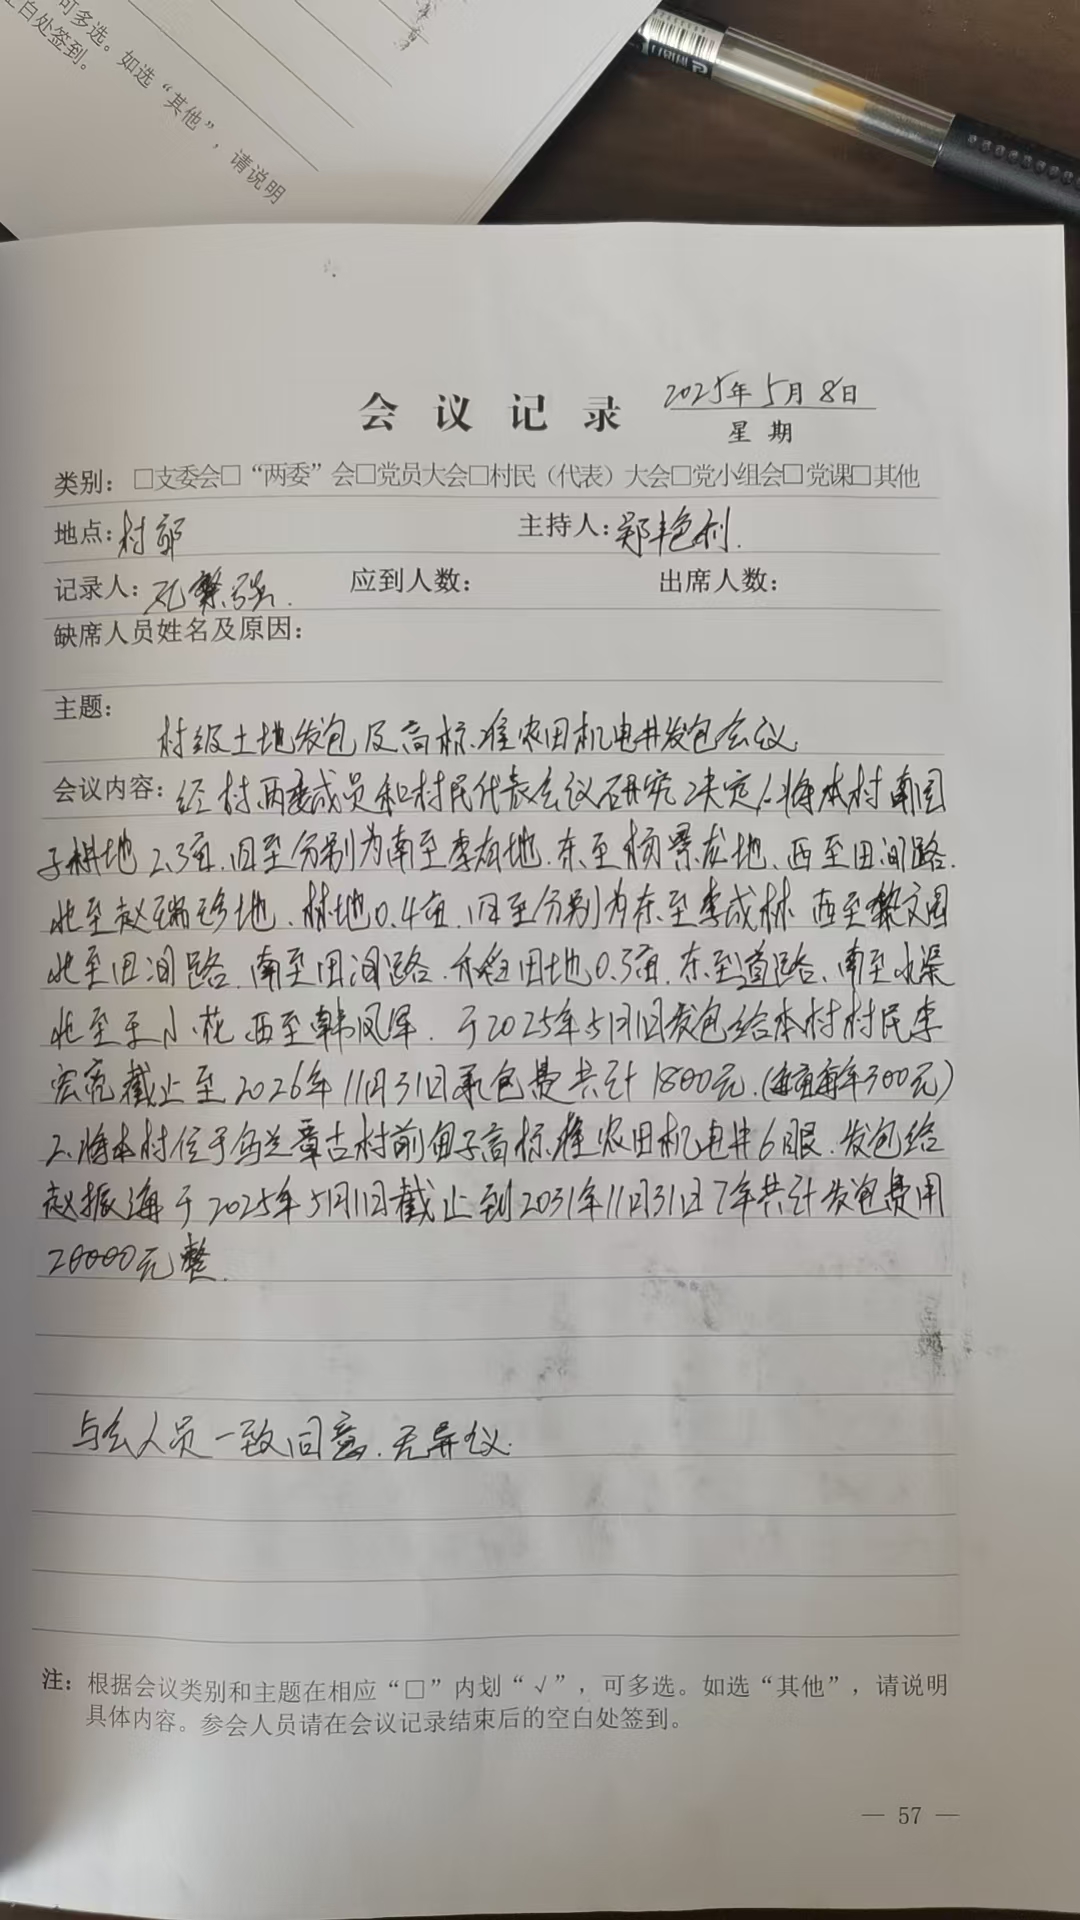 可多选。如选“其他”，请说明
白处签到。
会议记录 2025年5月8日
星期
类别：□支委会□“两委”会□党员大会□村民（代表）大会□党小组会□党课□其他
地点：村部 主持人：郑艳利.
记录人：孔繁强. 应到人数： 出席人数：
缺席人员姓名及原因：
主题：
村级土地发包及高标准农田机电井发包会议.
会议内容：经村两委成员和村民代表会议研究决定1.将本村南园
子耕地2.3亩.四至分别为南至李有地.东至杨景龙地、西至田间路.
北至赵瑞珍地.林地0.4亩.四至分别为东至李成林 西至黎文国
北至田间路.南至田间路.水稻田地0.3亩.东至道路、南至水渠
北至于小花 西至韩凤军.于2025年5月1日发包给本村村民李
宏亮截止至2026年11月31日承包费共计1800元.(每亩每年300元)
2.将本村位于乌兰章古村前甸子高标准农田机电井6眼.发包给
赵振海于2025年5月1日截止到2031年11月31日7年共计发包费用
20000元整.
与会人员一致同意.无异议.
注：根据会议类别和主题在相应“□”内划“√”，可多选。如选“其他”，请说明
具体内容。参会人员请在会议记录结束后的空白处签到。
— 57 —